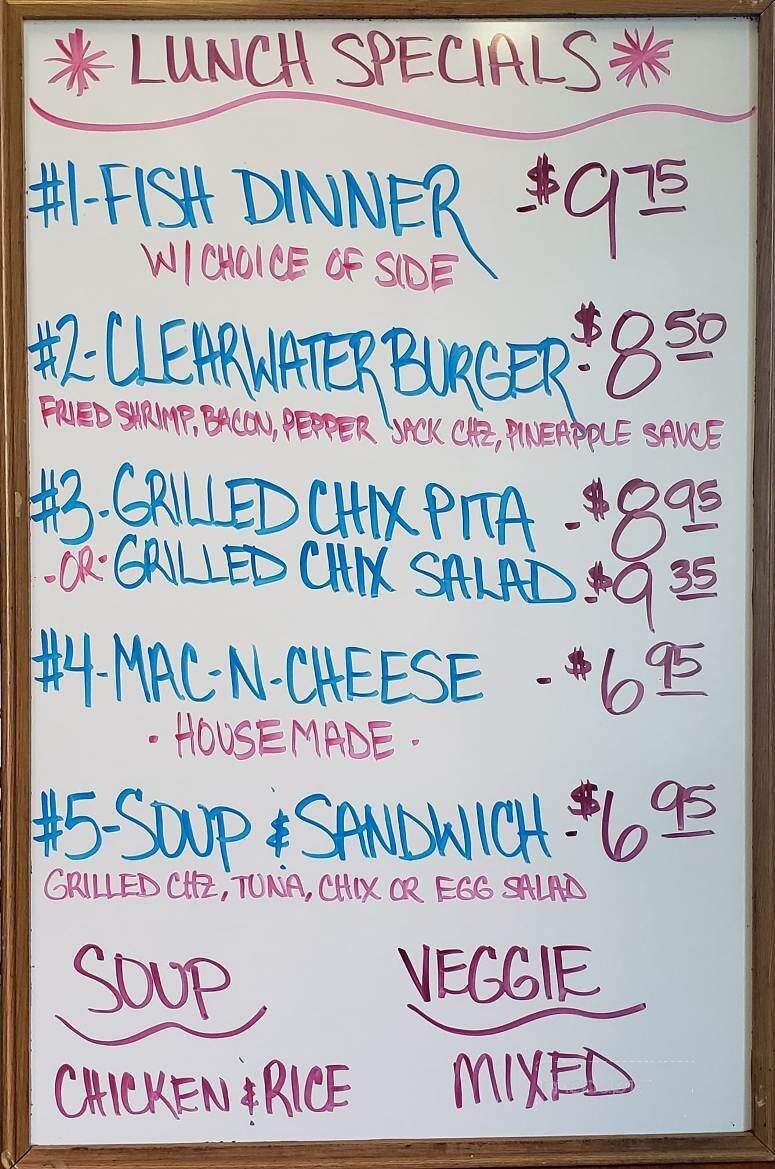 * LUNCH SPECIALS *
#1-FISH DINNER - $9 75
W/ CHOICE OF SIDE
#2-CLEARWATER BURGER - $8 50
FRIED SHRIMP, BACON, PEPPER JACK CHZ, PINEAPPLE SAUCE
#3-GRILLED CHIX PITA - $8 95
-OR- GRILLED CHIX SALAD - $9 35
#4-MAC-N-CHEESE - $6 95
· HOUSEMADE ·
#5-SOUP & SANDWICH - $6 95
GRILLED CHZ, TUNA, CHIX OR EGG SALAD
SOUP VEGGIE
CHICKEN & RICE MIXED